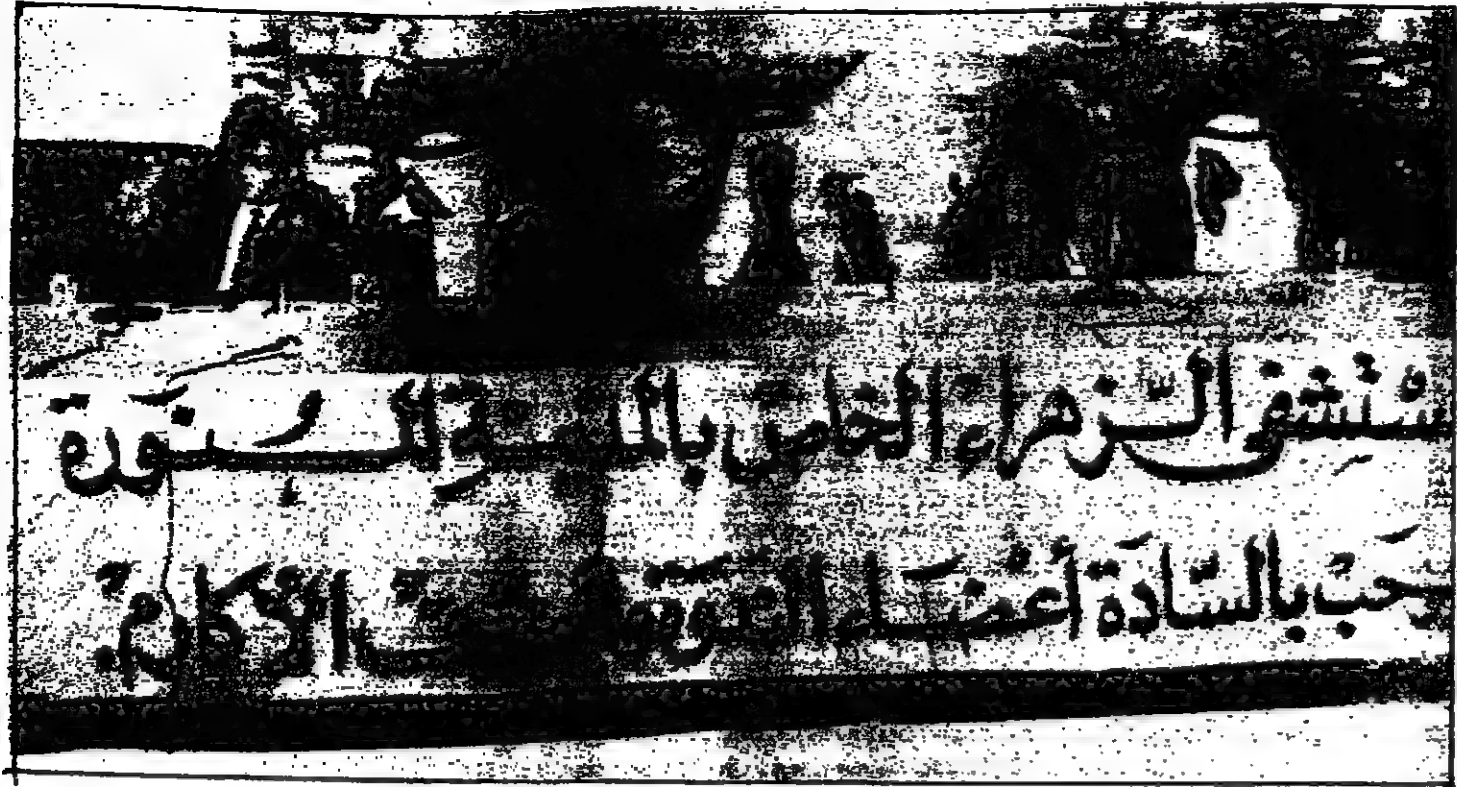 ستشفى الزهراء الخاص بالمدينة المنورة
حب بالسادة أعضاء الاكارم